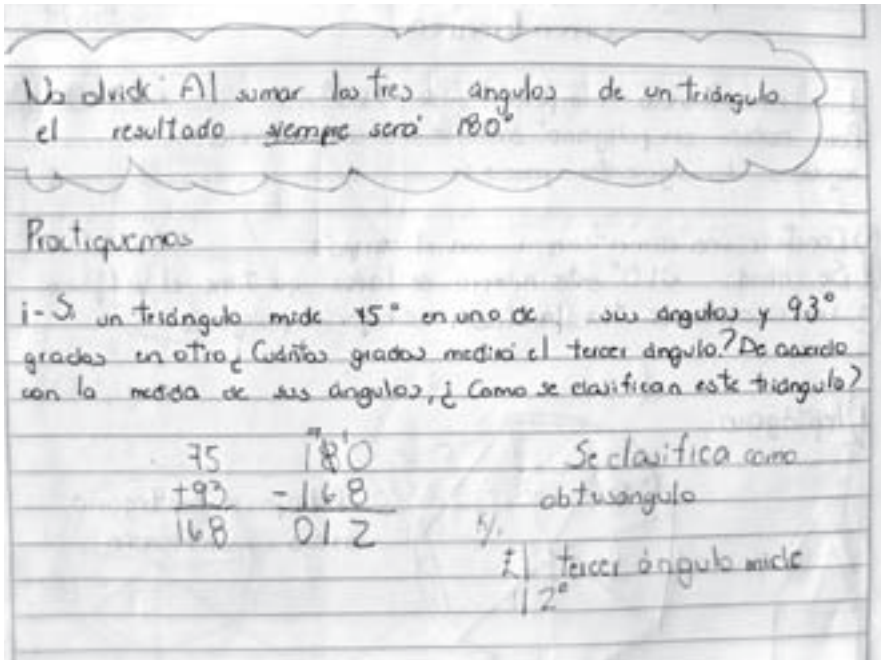 No olvide: Al sumar los tres ángulos de un triángulo
el resultado siempre será 180°
Practiquemos
1- Si un triángulo mide 75° en uno de sus ángulos y 93°
grados en otro ¿Cuántos grados medirá el tercer ángulo? De acuerdo
con la medida de sus ángulos, ¿Como se clasifican este triángulo?
75 180 Se clasifica como
+93 -168 obtusángulo
168 012 R/.
El tercer ángulo mide
12°